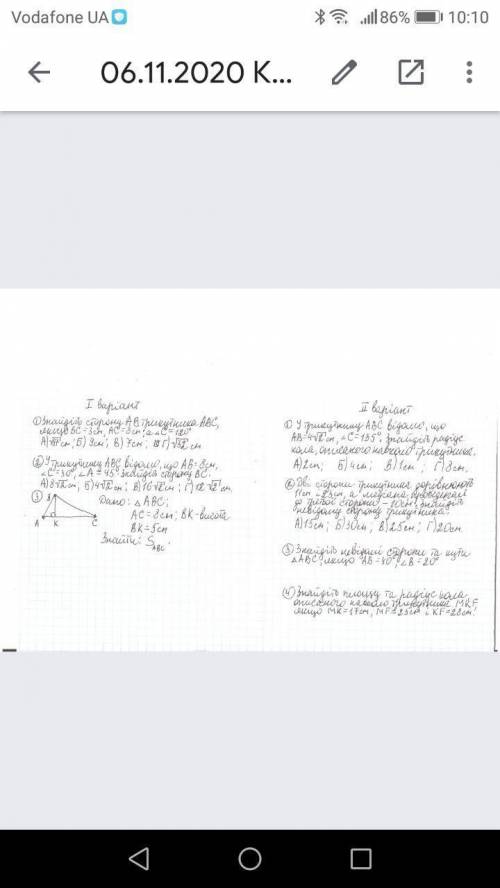 Vodafone UA 86% 10:10
06.11.2020 К...
І варіант
① Знайдіть сторону AB трикутника ABC,
якщо BC=3см, AC=8см, а ∠C=120°
А) см; Б) 9см; В) 7см; Г) см.
② У трикутнику ABC відомо, що AB=8см,
∠C=30°, ∠A=45°. Знайдіть сторону BC.
А) 8√2 см; Б) 4√2 см; В) 16√2 см; Г) √2 см.
③ B
A K C
Дано: △ABC;
AC=8см; BK-висота
BK=5см
Знайти: S ABC.
ІІ варіант
① У трикутнику ABC відомо, що
AB=4√2 см, ∠C=135°. Знайдіть радіус
кола, описаного навколо трикутника.
А) 2см; Б) 4см; В) 1см; Г) 8см.
② Дві сторони трикутника дорівнюють
11см і 23см, а медіана, проведена
до третьої сторони - 10см. Знайдіть
невідому сторону трикутника.
А) 15см; Б) 30см; В) 25см; Г) 20см.
③ Знайдіть невідомі сторони та кути
△ABC, якщо ∠B=20°
④ Знайдіть площу та радіус кола
описаного навколо трикутника MKF
якщо MK=17см, MF=25см і KF=28см.